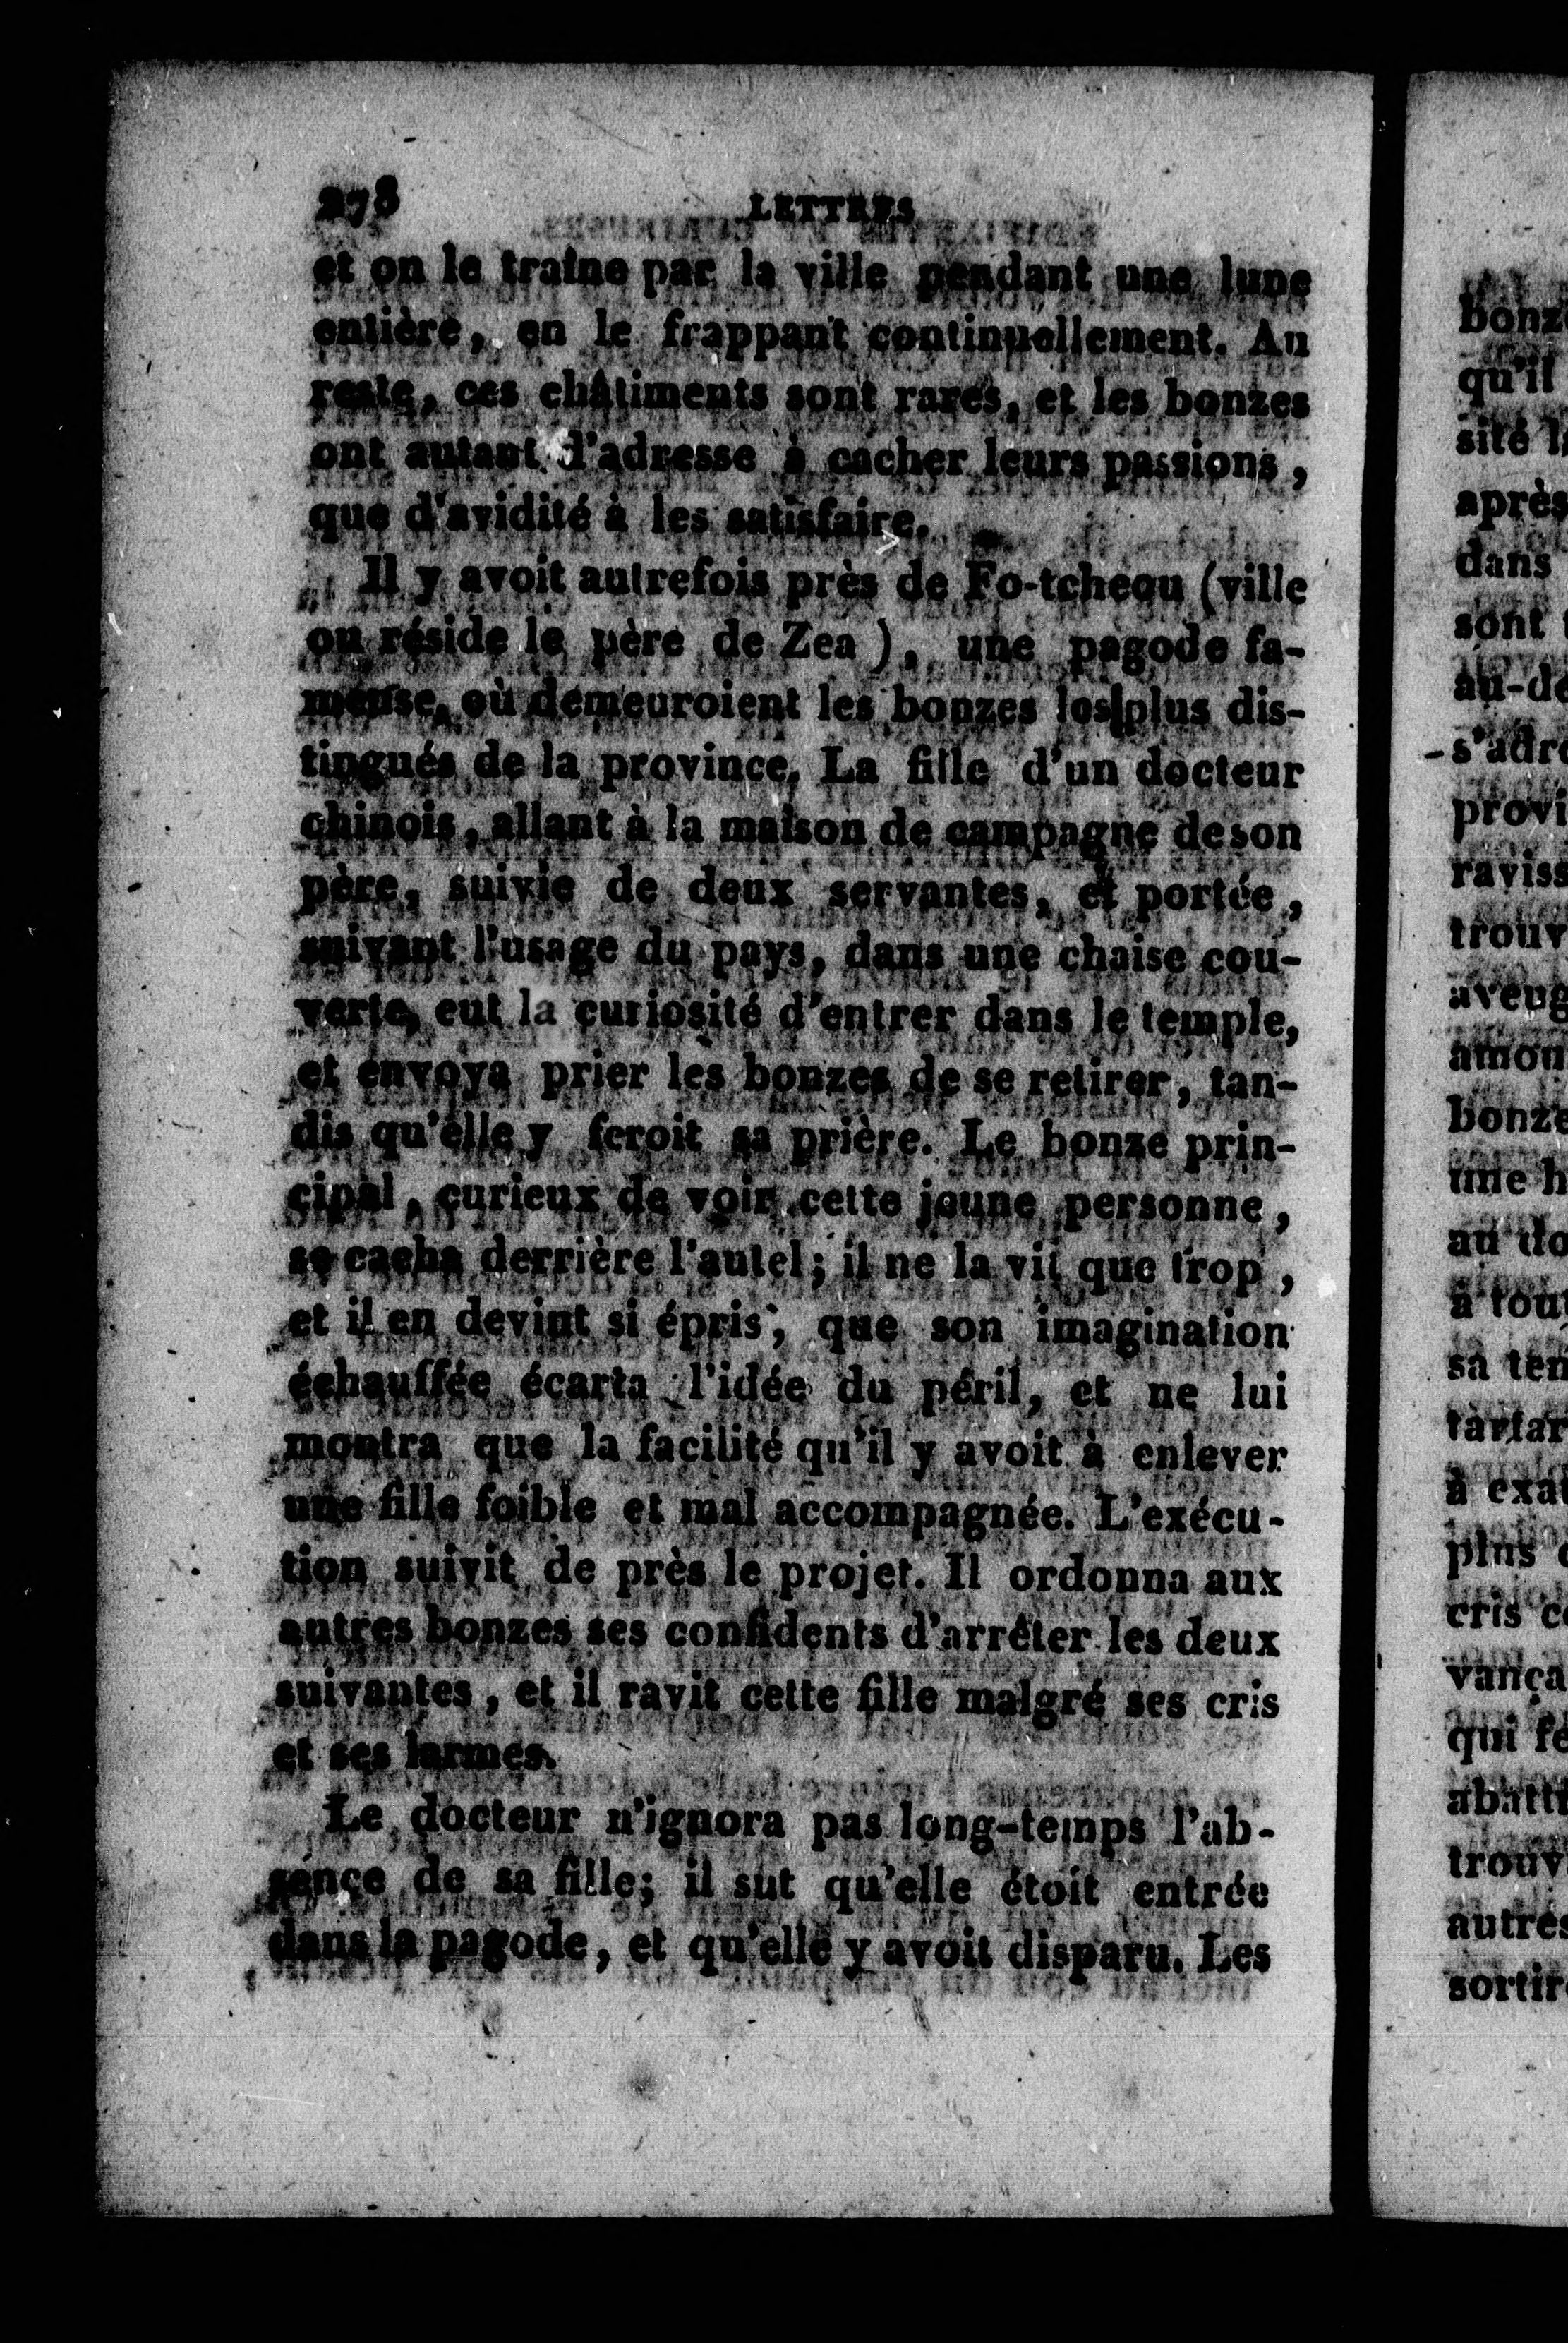 278 LETTRES
et on le traîne par la ville pendant une lune
entière, en le frappant continuellement. Au
reste, ces châtiments sont rares, et les bonzes
ont autant d'adresse à cacher leurs passions,
que d'avidité à les satisfaire.
Il y avoit autrefois près de Fo-tcheou (ville
ou réside le père de Zea), une pagode fa-
meuse, où demeuroient les bonzes les plus dis-
tingués de la province. La fille d'un docteur
chinois, allant à la maison de campagne de son
père, suivie de deux servantes, et portée,
suivant l'usage du pays, dans une chaise cou-
verte, eut la curiosité d'entrer dans le temple,
et envoya prier les bonzes de se retirer, tan-
dis qu'elle y feroit sa prière. Le bonze prin-
cipal, curieux de voir cette jeune personne,
se cacha derrière l'autel; il ne la vit que trop,
et il en devint si épris, que son imagination
échauffée écarta l'idée du péril, et ne lui
montra que la facilité qu'il y avoit à enlever
une fille foible et mal accompagnée. L'exécu-
tion suivit de près le projet. Il ordonna aux
autres bonzes ses confidents d'arrêter les deux
suivantes, et il ravit cette fille malgré ses cris
et ses larmes.
Le docteur n'ignora pas long-temps l'ab-
sence de sa fille; il sut qu'elle étoit entrée
dans la pagode, et qu'elle y avoit disparu. Les
bonz
qu'il
sité l
après
dans
sont
au-de
s'adr
provi
raviss
trouv
aveug
amou
bonze
une h
au do
à tou
sa ten
tartar
à exa
plus
cris c
vança
qui fe
abatt
trouv
autres
sortir